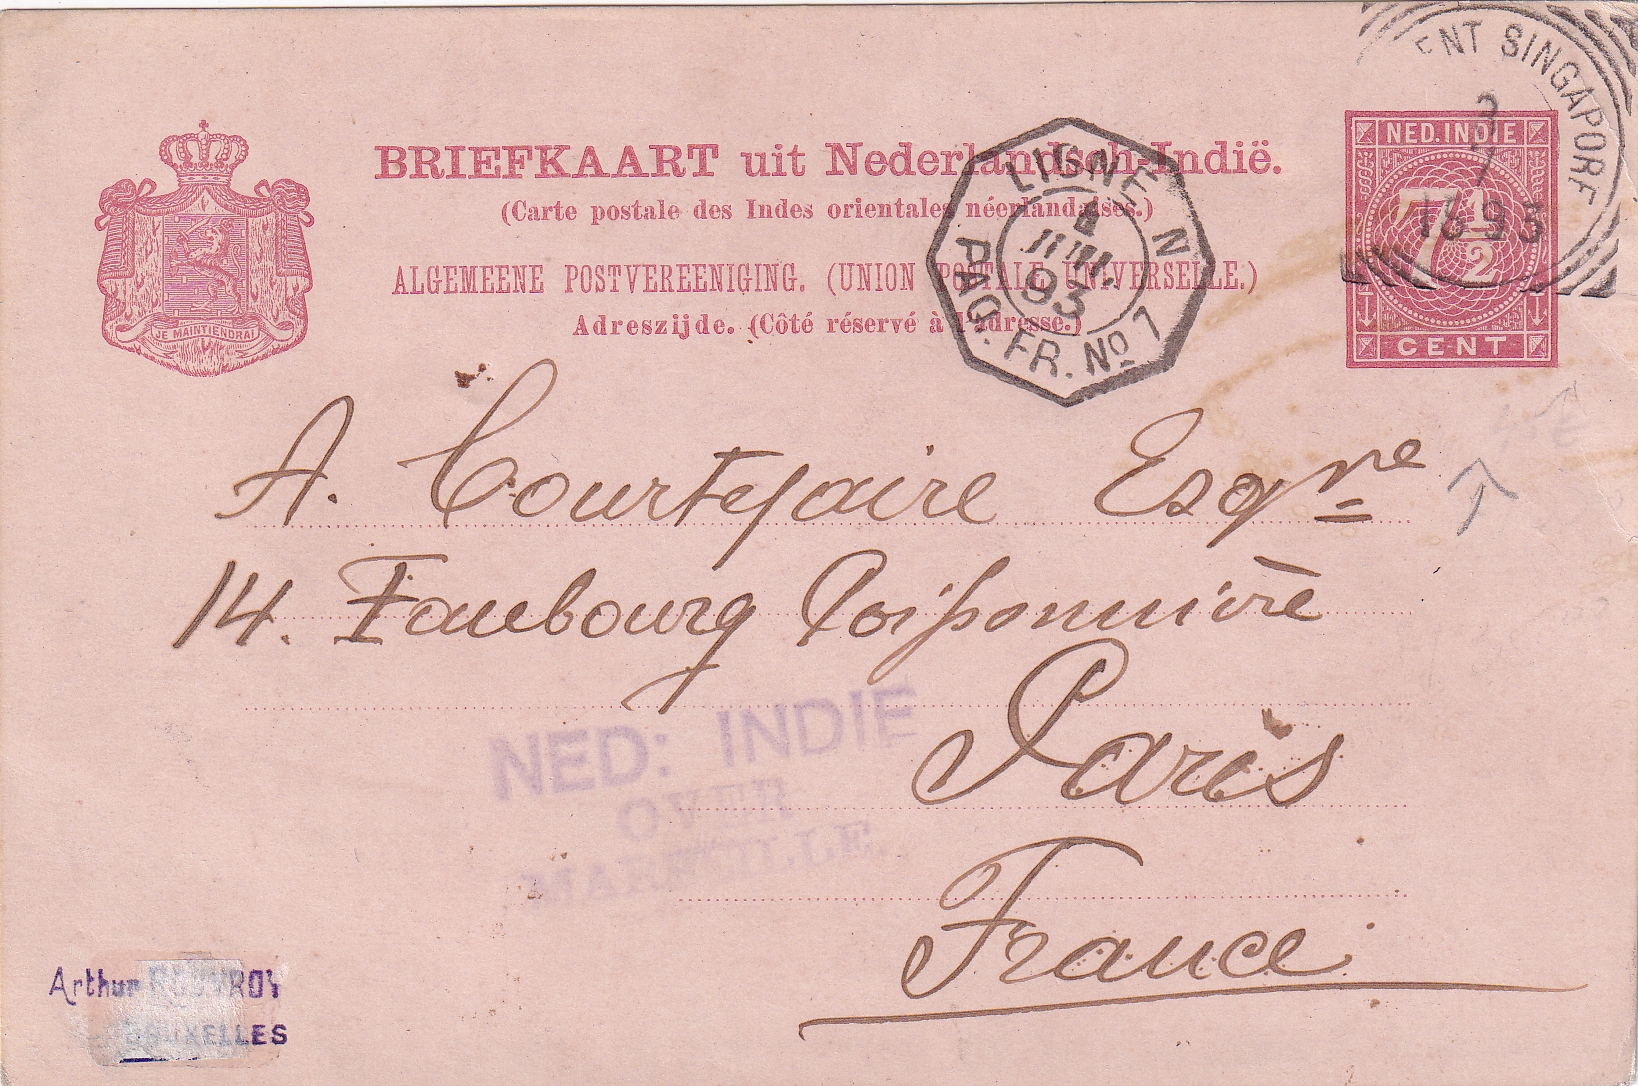 BRIEFKAART uit Nederlandsch-Indië.
(Carte postale des Indes orientales néerlandaises.)
ALGEMEENE POSTVEREENIGING. (UNION POSTALE UNIVERSELLE.)
Adreszijde. (Côté réservé à l'adresse.)
JE MAINTIENDRAI
LIGNE N
PAQ. FR. No 7
JUIN
93
SINGAPORE
93
NED. INDIE
7 1/2
CENT
A. Courtejaire Esqre
14. Faubourg Poissonnière
Paris
France
NED: INDIE
OVER
MARSEILLE
Arthur
BRUXELLES